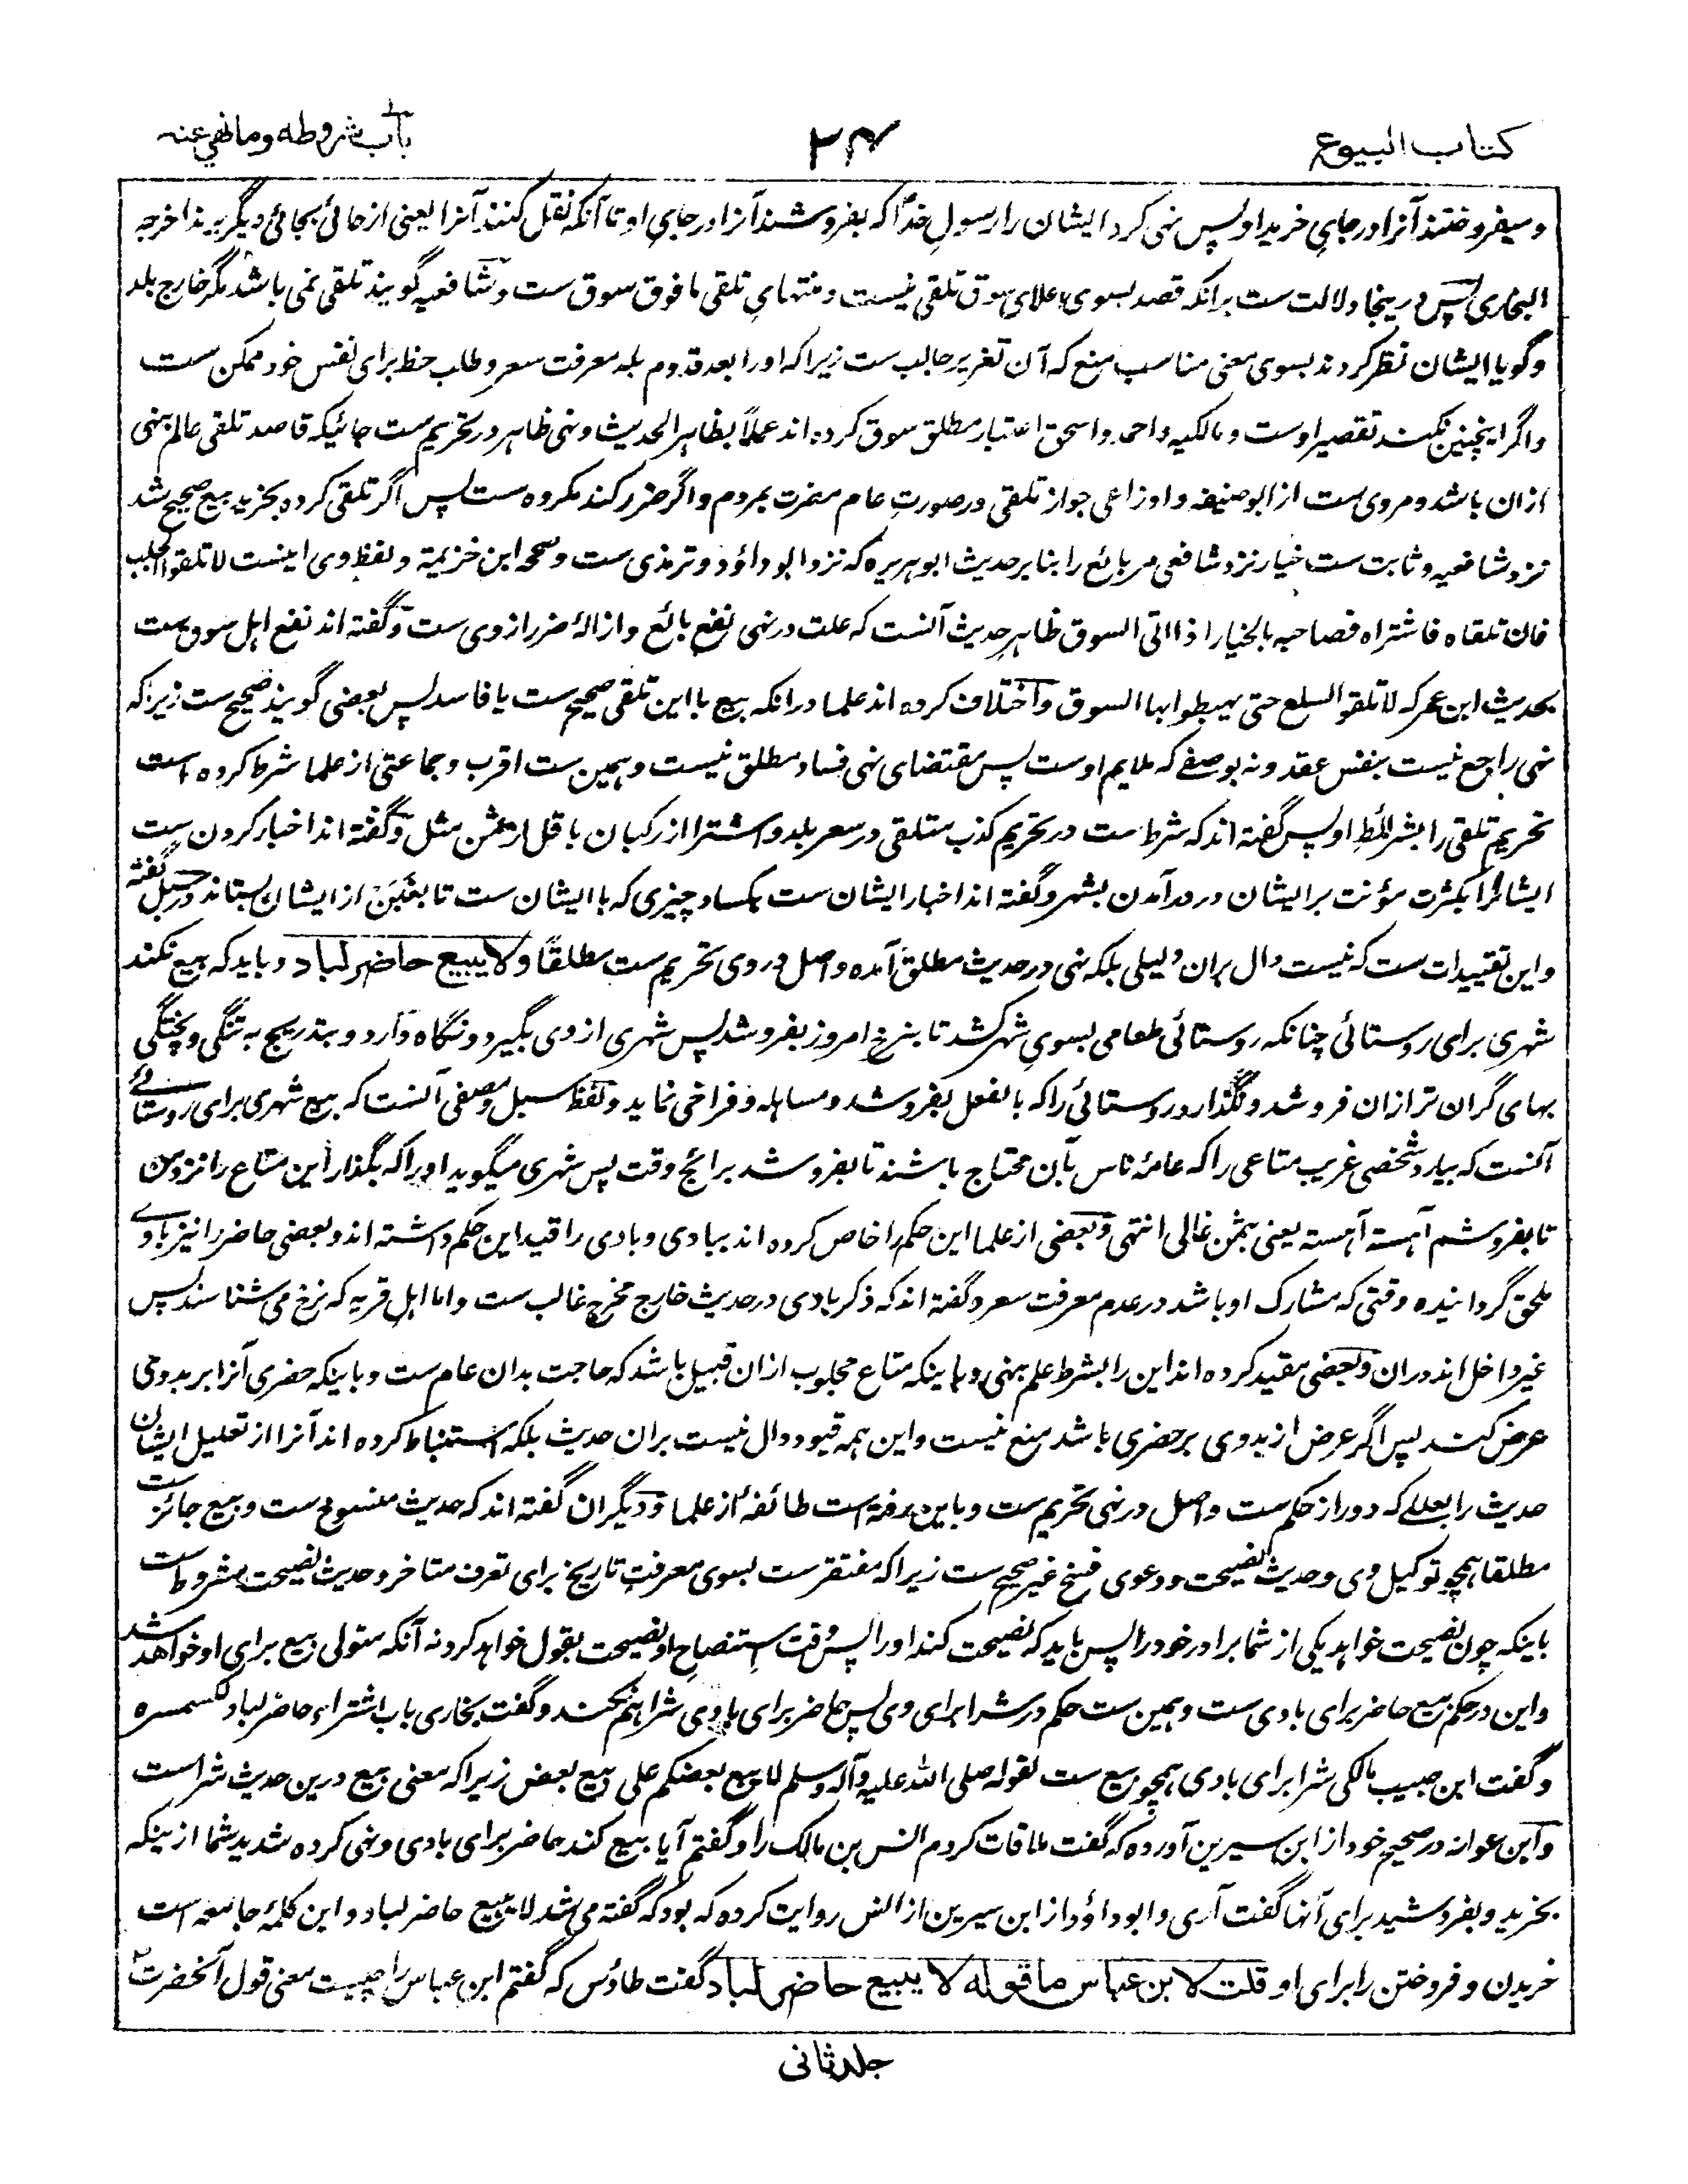 کتاب البیوع
۲۴
باب شروطه وما نهی عنه
و میفروختند آنرا در جای خرید او پس نهی کرد ایشان را رسول خدا که بفروشند آنرا در جای او تا آنکه نقل کنند آنرا یعنی از جائی بجائی دیگر بهذا اخرجه
البخاری پس درینجا دلالت ست برانکه قصد بسوی اعلای سوق تلقی نیست و منتهای تلقی ما فوق سوق ست و شافعیه گویند تلقی نمی باشد مگر خارج بلد
و گویا ایشان نظر کردند بسوی معنی مناسب منع که آن تغریر جالب ست زیرا که او را بعد قدوم بلد معرفت سعر و طلب حظ برای نفس خود ممکن ست
و اگر اینچنین نکند تقصیر اوست و مالکیه و احمد و اسحق اعتبار مطلق سوق کرده اند عملاً بظاهر الحدیث و نهی ظاهر در تحریم ست جائیکه قاصد تلقی عالم بنهی
ازان باشد و مروی ست از ابوحنیفه و اوزاعی جواز تلقی در صورت عام مضرت بمردم و اگر ضرر کند مکروه ست پس اگر تلقی کرده بخرید بیع صحیح شد
نزد شافعیه و ثابت ست خیار نزد شافعی مر بائع را بنا بر حدیث ابوهریره که نزد ابوداؤد و ترمذی ست و صححه ابن خزیمة و لفظ وی اینست لا تلقوا الجلب
فان تلقاه فاشتراه فصاحبه بالخیار اذا اتی السوق ظاهر حدیث آنست که علت در نهی نفع بائع و ازالۀ ضرر از وی ست و گفته اند نفع اهل سوق ست
بحدیث ابن عمر که لا تلقوا السلع حتی یهبطوا بها السوق و اختلاف کرده اند علما درانکه بیع با این تلقی صحیح ست یا فاسد پس بعضی گویند صحیح ست زیرا که
نهی راجع نیست بنفس عقد و نه بوصفی که ملایم اوست پس مقتضای نهی فساد مطلق نیست و همین ست اقرب و جماعتی از علما شرط کرده است
تحریم تلقی را بشرائط او پس گفته اند که شرط ست در تحریم کذب متلقی در سعر بلد و اشترا از رکبان با قل از ثمن مثل و گفته اند اخبار کردن ست
ایشانرا بکثرت مؤنت بر ایشان در درآمدن بشهر و گفته اند اخبار ایشان ست بکساد چیزی که با ایشان ست تا بغبن از ایشان بستاند در سبل گفته
و این تقییدات ست که نیست دال بران دلیلی بلکه نهی در حدیث مطلق آمده و اصل در وی تحریم ست مطلقاً ولا یبیع حاضر لباد و باید که بیع نکند
شهری برای روستائی چنانکه روستائی طعامی بسوی شهر کشد تا بنرخ امروز بفروشد پس شهری از وی بگیرد و نگاه دارد و بتدریج به تنگی و پختگی
بهای گران تر ازان فروشد و نگذارد روستائی را که بالفعل بفروشد و مساهله و فراخی نماید و لفظ سبل و مصفی آنست که بیع شهری برای روستائی
آنست که بیارد شخصی غریب متاعی را که عامۀ ناس بآن محتاج باشند تا بفروشد برائج وقت پس شهری میگوید او را که بگذار این متاع را نزد من
تا بفروشم آهسته آهسته یعنی بثمن غالی انتهی و بعضی از علما این حکم را خاص کرده اند ببادی و بادی را قید این حکم داشته اند و بعضی حاضر را نیز ببادی
ملحق گردانیده وقتی که مشارک او باشد در عدم معرفت سعر و گفته اند که ذکر بادی در حدیث خارج مخرج غالب ست و اما اهل قریه که نرخ می شناسند پس
غیر داخل اند دران و بعضی مقید کرده اند این را بشرط علم بنهی و باینکه متاع مجلوب ازان قبیل باشد که حاجت بدان عام ست و باینکه حضری آنرا بر بدوی
عرض کند پس اگر عرض از بدوی بر حضری باشد منع نیست و این همه قیود دال نیست بران حدیث بلکه استنباط کرده اند آنرا از تعلیل ایشان
حدیث را بعللی که دور از حکم ست و اصل در نهی تحریم ست و باین رفته است طائفۀ از علما و دیگران گفته اند که حدیث منسوخ ست و بیع جائز ست
مطلقا همچو توکیل وی و حدیث نصیحت و دعوی فسخ غیر صحیح ست زیرا که مفتقر ست بسوی معرفت تاریخ برای تعرف متاخر و حدیث نصیحت مشروط ست
باینکه چون نصیحت خواهد یکی از شما برادر خود را پس باید که نصیحت کند او را پس وقت استنصاح او نصیحت بقول خواهد کرد نه آنکه متولی بیع برای او خواهد شد
و این در حکم بیع حاضر برای بادی ست و همین ست حکم در شرا برای وی پس حاضر برای بادی شرا هم نکند و گفت بخاری باب اشتراء حاضر لباد بسمسره
و گفت ابن حبیب مالکی شرا برای بادی همچو بیع ست لقوله صلی الله علیه وآله وسلم لا یبیع بعضکم علی بیع بعض زیرا که معنی بیع درین حدیث شراست
و ابن عوانه در صحیح خود از ابن سیرین آورده که گفت ملاقات کردم انس بن مالک را و گفتم آیا بیع کند حاضر برای بادی و نهی کرده شدید شما ازینکه
بخرید و بفروشید برای آنها گفت آری و ابوداؤد از ابن سیرین از انس روایت کرده که بود که گفته می شد لا یبیع حاضر لباد و این کلمۀ جامعه است
خریدن و فروختن را برای او قلت لابن عباس ما قوله لا یبیع حاضر لباد گفت طاؤس که گفتم ابن عباس را چیست معنی قول آنحضرت
جلد ثانی